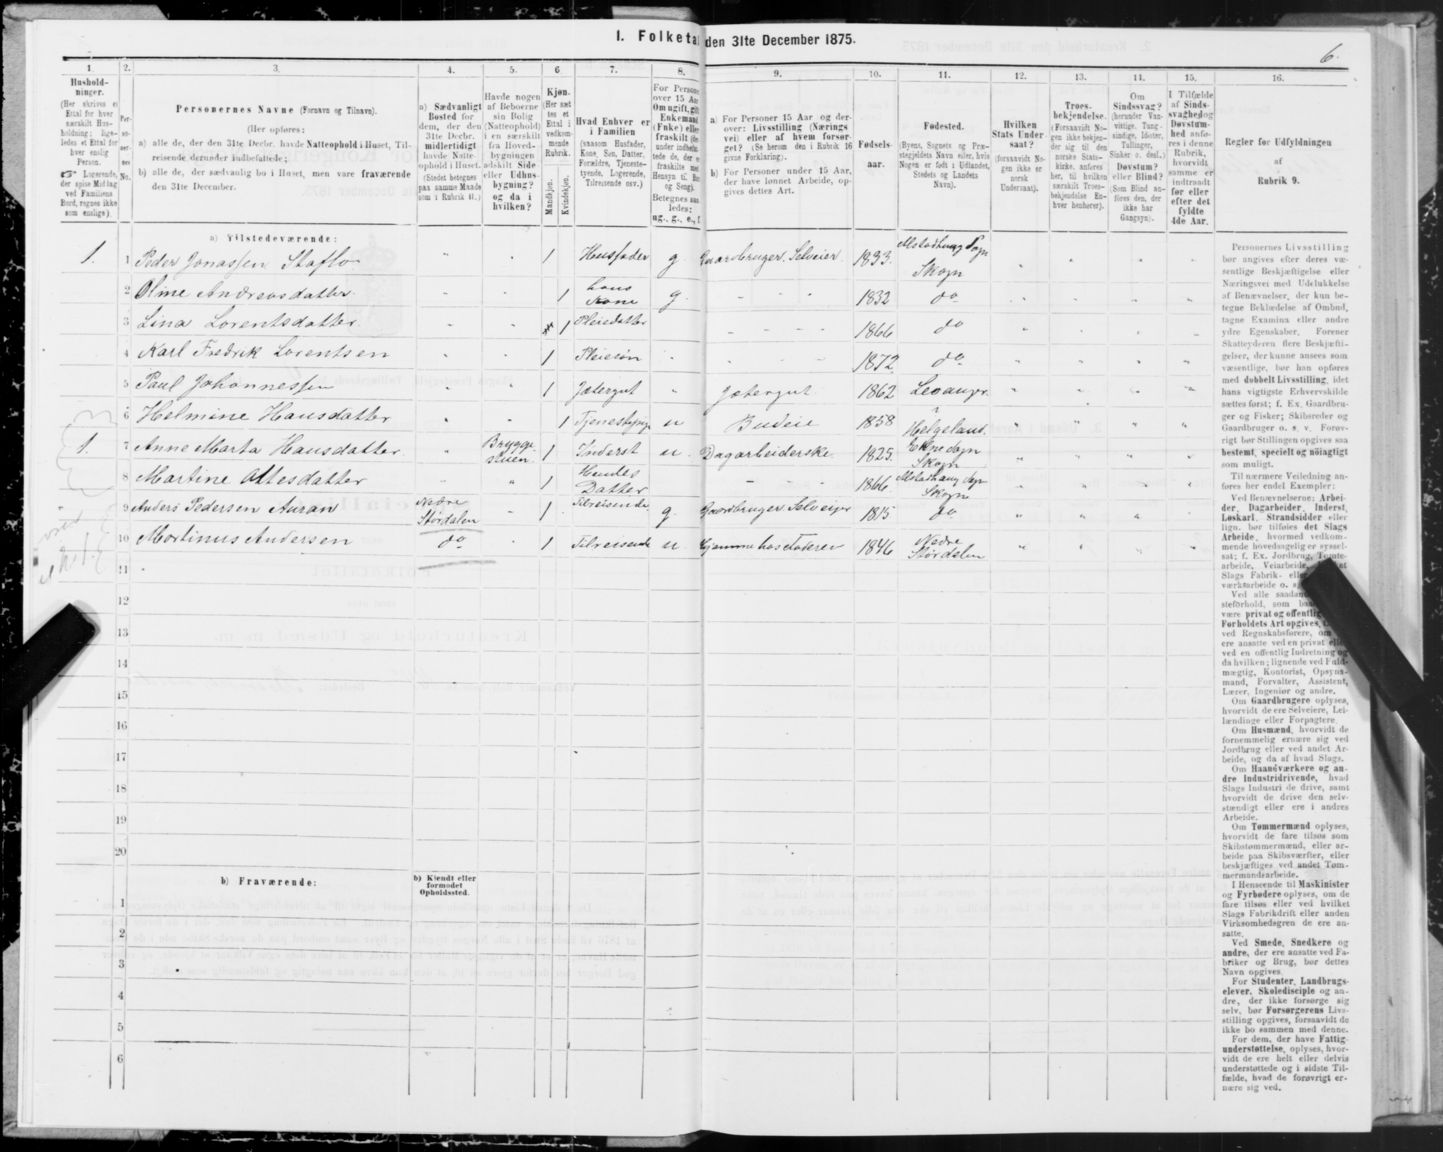 I. Folketal den 31te December 1875.
6.
1.
Hushold-
ninger.
(Her skrives et
Ettal for hver
særskilt Hus-
holdning; lige-
ledes et Ettal for
hver enslig
Person.
Logerende,
der spise Middag
ved Familiens
Bord, regnes ikke
som enslige).
2.
Per-
so-
ner-
nes
No.
3.
Personernes Navne (Fornavn og Tilnavn).
(Her opføres:
a) alle de, der den 31te Decbr. havde Natteophold i Huset, Til-
reisende derunder indbefattede;
b) alle de, der sædvanlig bo i Huset, men vare fraværende
den 31te December.
4.
a) Sædvanligt
Bosted for
dem, der den
31te Decbr.
midlertidigt
havde Natte-
ophold i Huset.
(Stedet betegnes
paa samme Maade
som i Rubrik 11.)
5.
Havde nogen
af Beboerne
sin Bolig
(Natteophold)
i en særskilt
fra Hoved-
bygningen
adskilt Side-
eller Udhus-
bygning?
og da i
hvilken?
6.
Kjøn.
(Her sæt-
tes et
Ettal i
vedkom-
mende
Rubrik.
Mandkjøn.
Kvindekjøn.
7.
Hvad Enhver er
i Familien
(saasom Husfader,
Kone, Søn, Datter,
Forældre, Tjeneste-
tyende, Logerende,
Tilreisende osv.)
8.
For Personer
over 15 Aar
Om ugift, gift,
Enkemand
(Enke) eller
fraskilt
Betegnes saa-
ledes:
ug., g., e., f.
9.
a) For Personer 15 Aar og der-
over: Livsstilling (Nærings-
vei) eller af hvem forsør-
get? (Se herom den i Rubrik 16
givne Forklaring).
b) For Personer under 15 Aar,
der have lønnet Arbeide, op-
gives dettes Art.
10.
Fødsels-
aar.
11.
Fødested.
(Byens, Sognets og Præ-
stegjeldets Navn eller, hvis
Nogen er født i Udlandet,
Stedets og Landets
Navn).
12.
Hvilken
Stats Under-
saat?
(forsaavidt No-
gen ikke er
norsk
Undersaat).
13.
Troes-
bekjendelse.
(Forsaavidt No-
gen ikke bekjen-
der sig til den
norske Stats-
kirke, anføres
her, til hvilken
særskilt Troes-
bekjendelse En-
hver henhører).
14.
Om
Sindssvag?
(herunder Van-
vittige, Tung-
sindige, Idioter,
Tullinger,
Sinker o. desl.)
Døvstum?
eller Blind?
(Som Blind an-
føres den, der
ikke har
Gangsyn).
15.
I Tilfælde
af Sinds-
svaghed og
Døvstum-
hed anfø-
res i denne
Rubrik,
hvorvidt
samme er
indtraadt
før eller
efter det
fyldte
4de Aar.
16.
Regler for Udfyldningen
af
Rubrik 9.
a) Tilstedeværende:
1. 1 Peder Jonassen Staflo " " 1 Husfader g Gaardbruger. Selveier. 1833. Alstadhaug Sogn Skogn
2 Oline Andreasdatter " " 1 hans Kone g. " 1832 do
3 Lina Lorentsdatter " " 1 Pleiedatter 1866 do
4 Karl Fredrik Lorentsen " " 1 Pleiesøn 1872 do
5 Paul Johannessen " " 1 Jætergut " Jætergut 1862 Lexangr
6 Helmine Hansdatter " " 1 u Budeie 1858 Helgeland.
1. 7 Anne Marta Hansdatter " Bryggestuen 1 Inderst u. Dagarbeiderske. 1825. Ekne Sogn Skogn
8 Martine Ottesdatter " " 1 Hendes Datter 1866. Alstadhaug Sogn Skogn
9 Anders Pedersen Auran Nedre Størdalen " 1 Tilreisende g. Gaardbruger Selveier 1815 do
10 Martinus Andersen do " 1 Tilreisende u Hjemme hos Faderen 1846 Nedre Størdalen
11
12
13
14
15
16
17
18
19
20
b) Fraværende:
b) Kjendt eller
formodet
Opholdssted.
1
2
3
4
5
6
Personernes Livsstilling
bør angives efter deres væ-
sentlige Beskjæftigelse eller
Næringsvei med Udelukkelse
af Benævnelser, der kun be-
tegne Beklædelse af Ombud,
tagne Examina eller andre
ydre Egenskaber. Forener
Skatteyderen flere Beskjæfti-
gelser, der kunne ansees som
væsentlige, bør han opføres
med dobbelt Livsstilling, idet
hans vigtigste Erhvervskilde
sættes først; f. Ex. Gaardbru-
ger og Fisker; Skibsreder og
Gaardbruger o. s. v. Forøv-
rigt bør Stillingen opgives saa
bestemt, specielt og nøiagtigt
som muligt.
Til nærmere Veiledning an-
føres her endel Exempler:
Ved Benævnelserne: Arbei-
der, Dagarbeider, Inderst,
Løskarl, Strandsidder eller
lign. bør tilføies det Slags
Arbeide, hvormed vedkom-
mende hovedsagelig er syssel-
sat; f. Ex. Jordbrug, Tomte-
arbeide, Veiarbeide,
Slags Fabrik-
værksarbeide o. s.
Ved alle saadanne
steforhold, som
være privat og offentlig,
Forholdets Art opgives,
ved Regnskabsførere, om
ere ansatte ved en privat eller
ved en offentlig Indretning og
da hvilken; lignende ved Fuld-
mægtig, Kontorist, Opsyns-
mand, Forvalter, Assistent,
Lærer, Ingeniør og andre.
Om Gaardbrugere oplyses,
hvorvidt de ere Selveiere, Lei-
lændinge eller Forpagtere.
Om Husmænd, hvorvidt de
fornemmelig ernære sig ved
Jordbrug eller ved andet Ar-
beide, og da af hvad Slags.
Om Haandværkere og an-
dre Industridrivende, hvad
Slags Industri de drive, samt
hvorvidt de drive den selv-
stændigt eller ere i andres
Arbeide.
Om Tømmermænd oplyses,
hvorvidt de fare tilsøs som
Skibstømmermænd, eller ar-
beide paa Skibsværfter, eller
beskjæftiges ved andet Tøm-
mermandsarbeide.
I Henseende til Maskinister
og Fyrbødere oplyses, om de
fare tilsøs eller ved hvilket
Slags Fabrikdrift eller anden
Virksomhedsgren de ere an-
satte.
Ved Smede, Snedkere og
andre, der ere ansatte ved Fa-
briker og Brug, bør dettes
Navn opgives.
For Studenter, Landbrugs-
elever, Skoledisciple og an-
dre, der ikke forsørge sig
selv, bør Forsørgerens Livs-
stilling opgives, forsaavidt de
ikke bo sammen med denne.
For dem, der have Fattig-
understøttelse, oplyses, hvor-
vidt de ere helt eller delvis
understøttede og i sidste Til-
fælde, hvad de forøvrigt er-
nære sig ved.